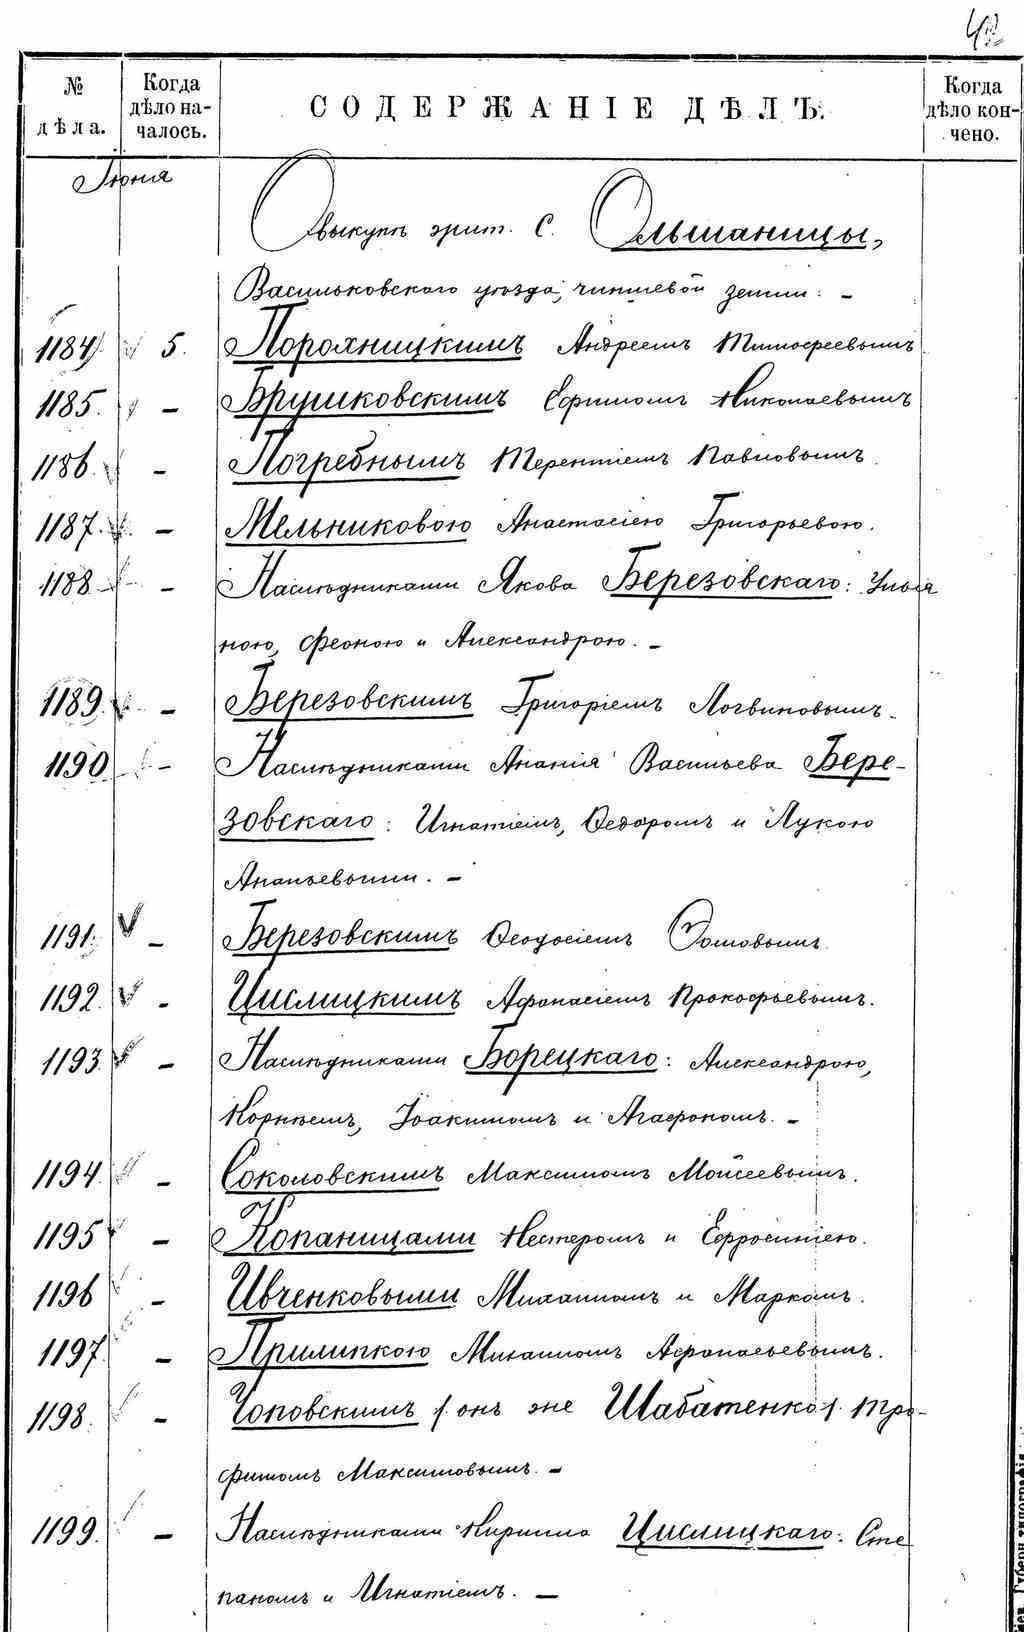 № дѣла.
Когда дѣло началось.
СОДЕРЖАНІЕ ДѢЛЪ.
Когда дѣло кончено.
Іюня
О выкупѣ жит. с. Ольшаницы,
Васильковскаго уѣзда, чиншевой земли: –
1184 5. Порохницкимъ Андреемъ Тимофеевымъ
1185. – Брушковскимъ Ефимомъ Николаевымъ
1186. – Погребнымъ Терентіемъ Павловымъ
1187. – Мельниковою Анастасіею Григорьевою.
1188 – Наслѣдниками Якова Березовскаго: Улья
ною, Феоною и Александрою. –
1189. – Березовскимъ Григоріемъ Логвиновымъ.
1190 – Наслѣдниками Ананія Васильева Бере-
зовскаго: Игнатіемъ, Ѳедоромъ и Лукою
Ананьевыми. –
1191. – Березовскимъ Ѳеодосіемъ Фомовымъ.
1192. – Цислицкимъ Афанасіемъ Прокофьевымъ.
1193. – Наслѣдниками Борецкаго: Александрою,
Корнѣемъ, Іоакимомъ и Агафономъ. –
1194. – Соколовскимъ Максимомъ Мойсеевымъ.
1195 – Копаницами Нестеромъ и Ефросиніею.
1196 – Ивченковыми Михаиломъ и Маркомъ.
1197. – Прилипкою Михаиломъ Афанасьевымъ.
1198. – Чоповскимъ /. онъ же Шабатенко /. Тро-
фимомъ Максимовымъ. –
1199. – Наслѣдниками Кирилла Цислицкаго: Сте
паномъ и Игнатіемъ. –